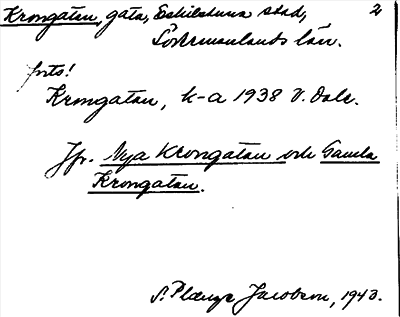 Krongatan, gata, Eskilstuna stad, 2
Södermanlands län.
forts!
Krongatan, k-a 1938 V. Dalr.
Jfr. Nya Krongatan och Gamla
Krongatan.
Jacobson, 1943.